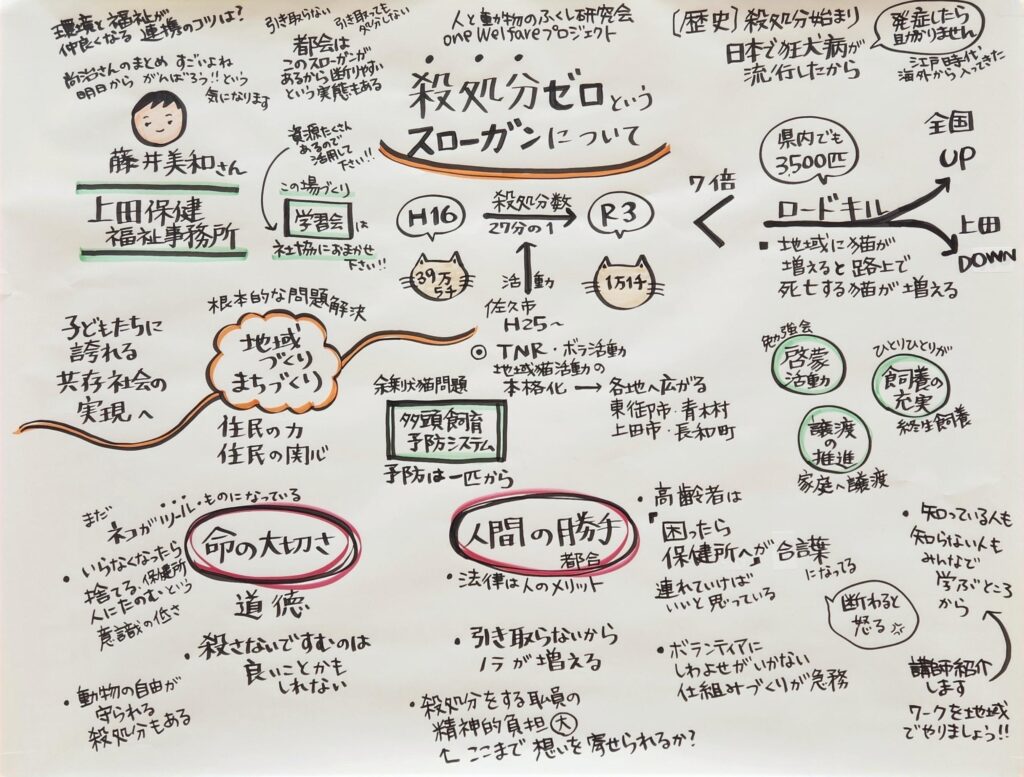 環境と福祉が
仲良くなる 連携のコツは?
尚治さんのまとめ すごいよね
明日から がんばろう!! という
気になります
藤井美和さん
上田保健
福祉事務所
引き取らない
引き取っても
処分しない
都会は
このスローガンが
あるから断りやすい
という実態もある
資源たくさん
あるので
活用して
下さい!!
この場づくり
学習会は
社協におまかせ
下さい!!
人と動物のふくし研究会
one Welfareプロジェクト
殺処分ゼロという
スローガンについて
〔歴史〕殺処分始まり
日本で狂犬病が
流行したから
発症したら
助かりません
江戸時代
海外から入ってきた
H16
殺処分数
27分の1
R3
39万
5千
1万1千
活動
佐久市
H25~
◎ TNR・ボラ活動
地域猫活動の
本格化 → 各地へ広がる
東御市・青木村
上田市・長和町
7倍
県内でも
3,500匹
ロードキル
全国
UP
上田
DOWN
■ 地域に猫が
増えると路上で
死亡する猫が増える
根本的な問題解決
地域
づくり
まちづくり
住民の力
住民の関心
子どもたちに
誇れる
共存社会の
実現へ
余剰犬猫問題
多頭飼育
予防システム
予防は一匹から
勉強会
啓蒙
活動
ひとりひとりが
飼養の
充実
終生飼養
譲渡
の
推進
家庭へ譲渡
まだ
ネコがツール・ものになっている
・いらなくなったら
捨てる、保健所
人にたのむという
意識の低さ
命の大切さ
道徳
・殺さないですむのは
良いことかも
しれない
・動物の自由が
守られる
殺処分もある
人間の勝手
都合
・法律は人のメリット
・引き取らないから
ノラが増える
・殺処分をする職員の
精神的負担 大
← ここまで 想いを寄せられるか?
・高齢者は
「困ったら
保健所へ」が合言葉
になってる
連れていけば
いいと思っている
断わると
怒る
・ボランティアに
しわよせがいかない
仕組みづくりが急務
・知っている人も
知らない人も
みんなで
学ぶところ
から
講師紹介
します
ワークを地域
でやりましょう!!